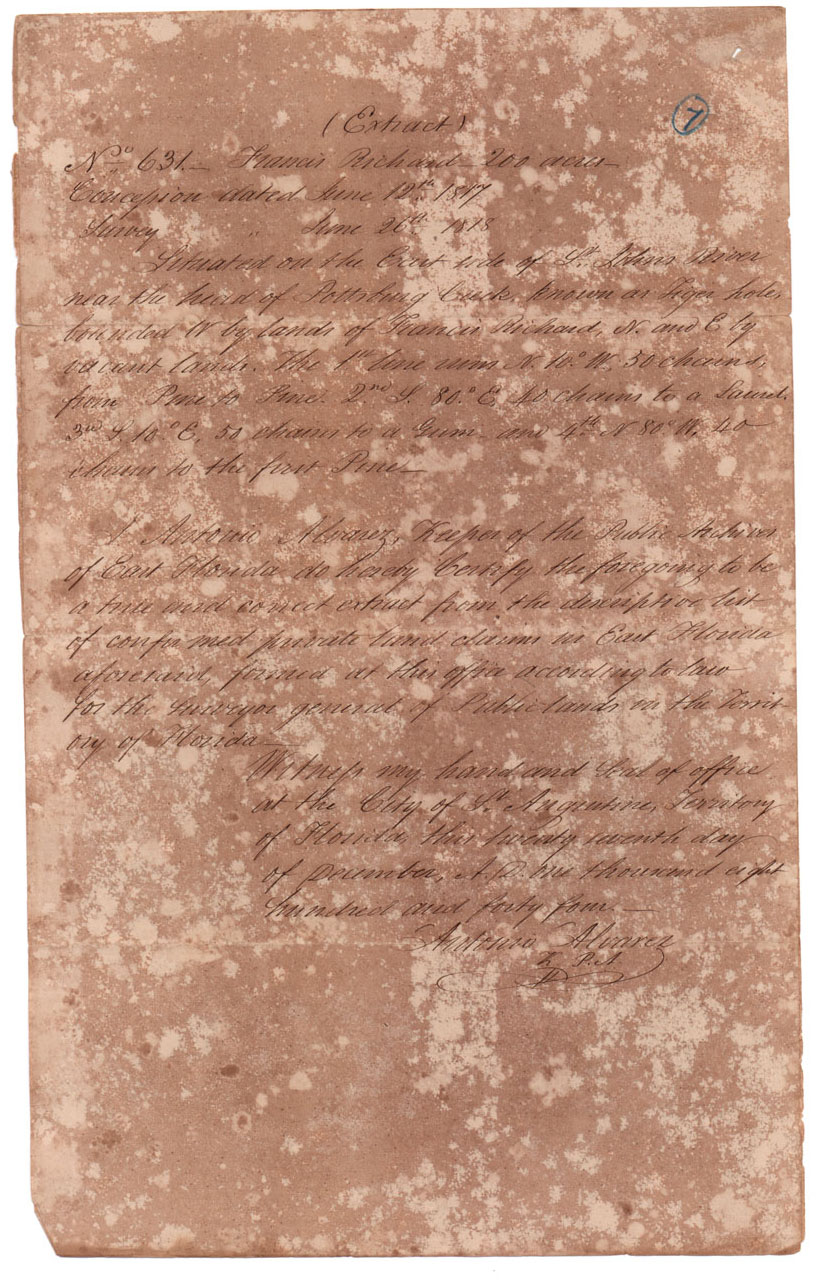 (Extract)
7
No 631. — Francis Richard — 200 acres —
Concession dated June 12th 1817
Survey " June 26th 1818
Situated on the East side of St. Johns River
near the head of Pottsburg Creek, known as Tiger hole,
bounded W by lands of Francis Richard, N. and E by
vacant lands. The 1st line runs N. 10.° W. 50 chains,
from Pine to Pine. 2nd S. 80.° E, 40 chains to a Laurel.
3rd S. 10.° E, 50 chains to a Gum — and 4th N 80° W. 40
chains to the first Pine —
I Antonio Alvarez, Keeper of the Public Archives
of East Florida do hereby Certify the foregoing to be
a true and correct extract from the descriptive list
of confirmed private land claims in East Florida
aforesaid, formed at this office according to law
for the surveyor general of Public lands in the Territ-
ory of Florida —
Witness my hand and Seal of office
at the City of St. Augustine, Territory
of Florida, this twenty seventh day
of December, A.D. one thousand eight
hundred and forty four. —
Antonio Alvarez
K. P. A.